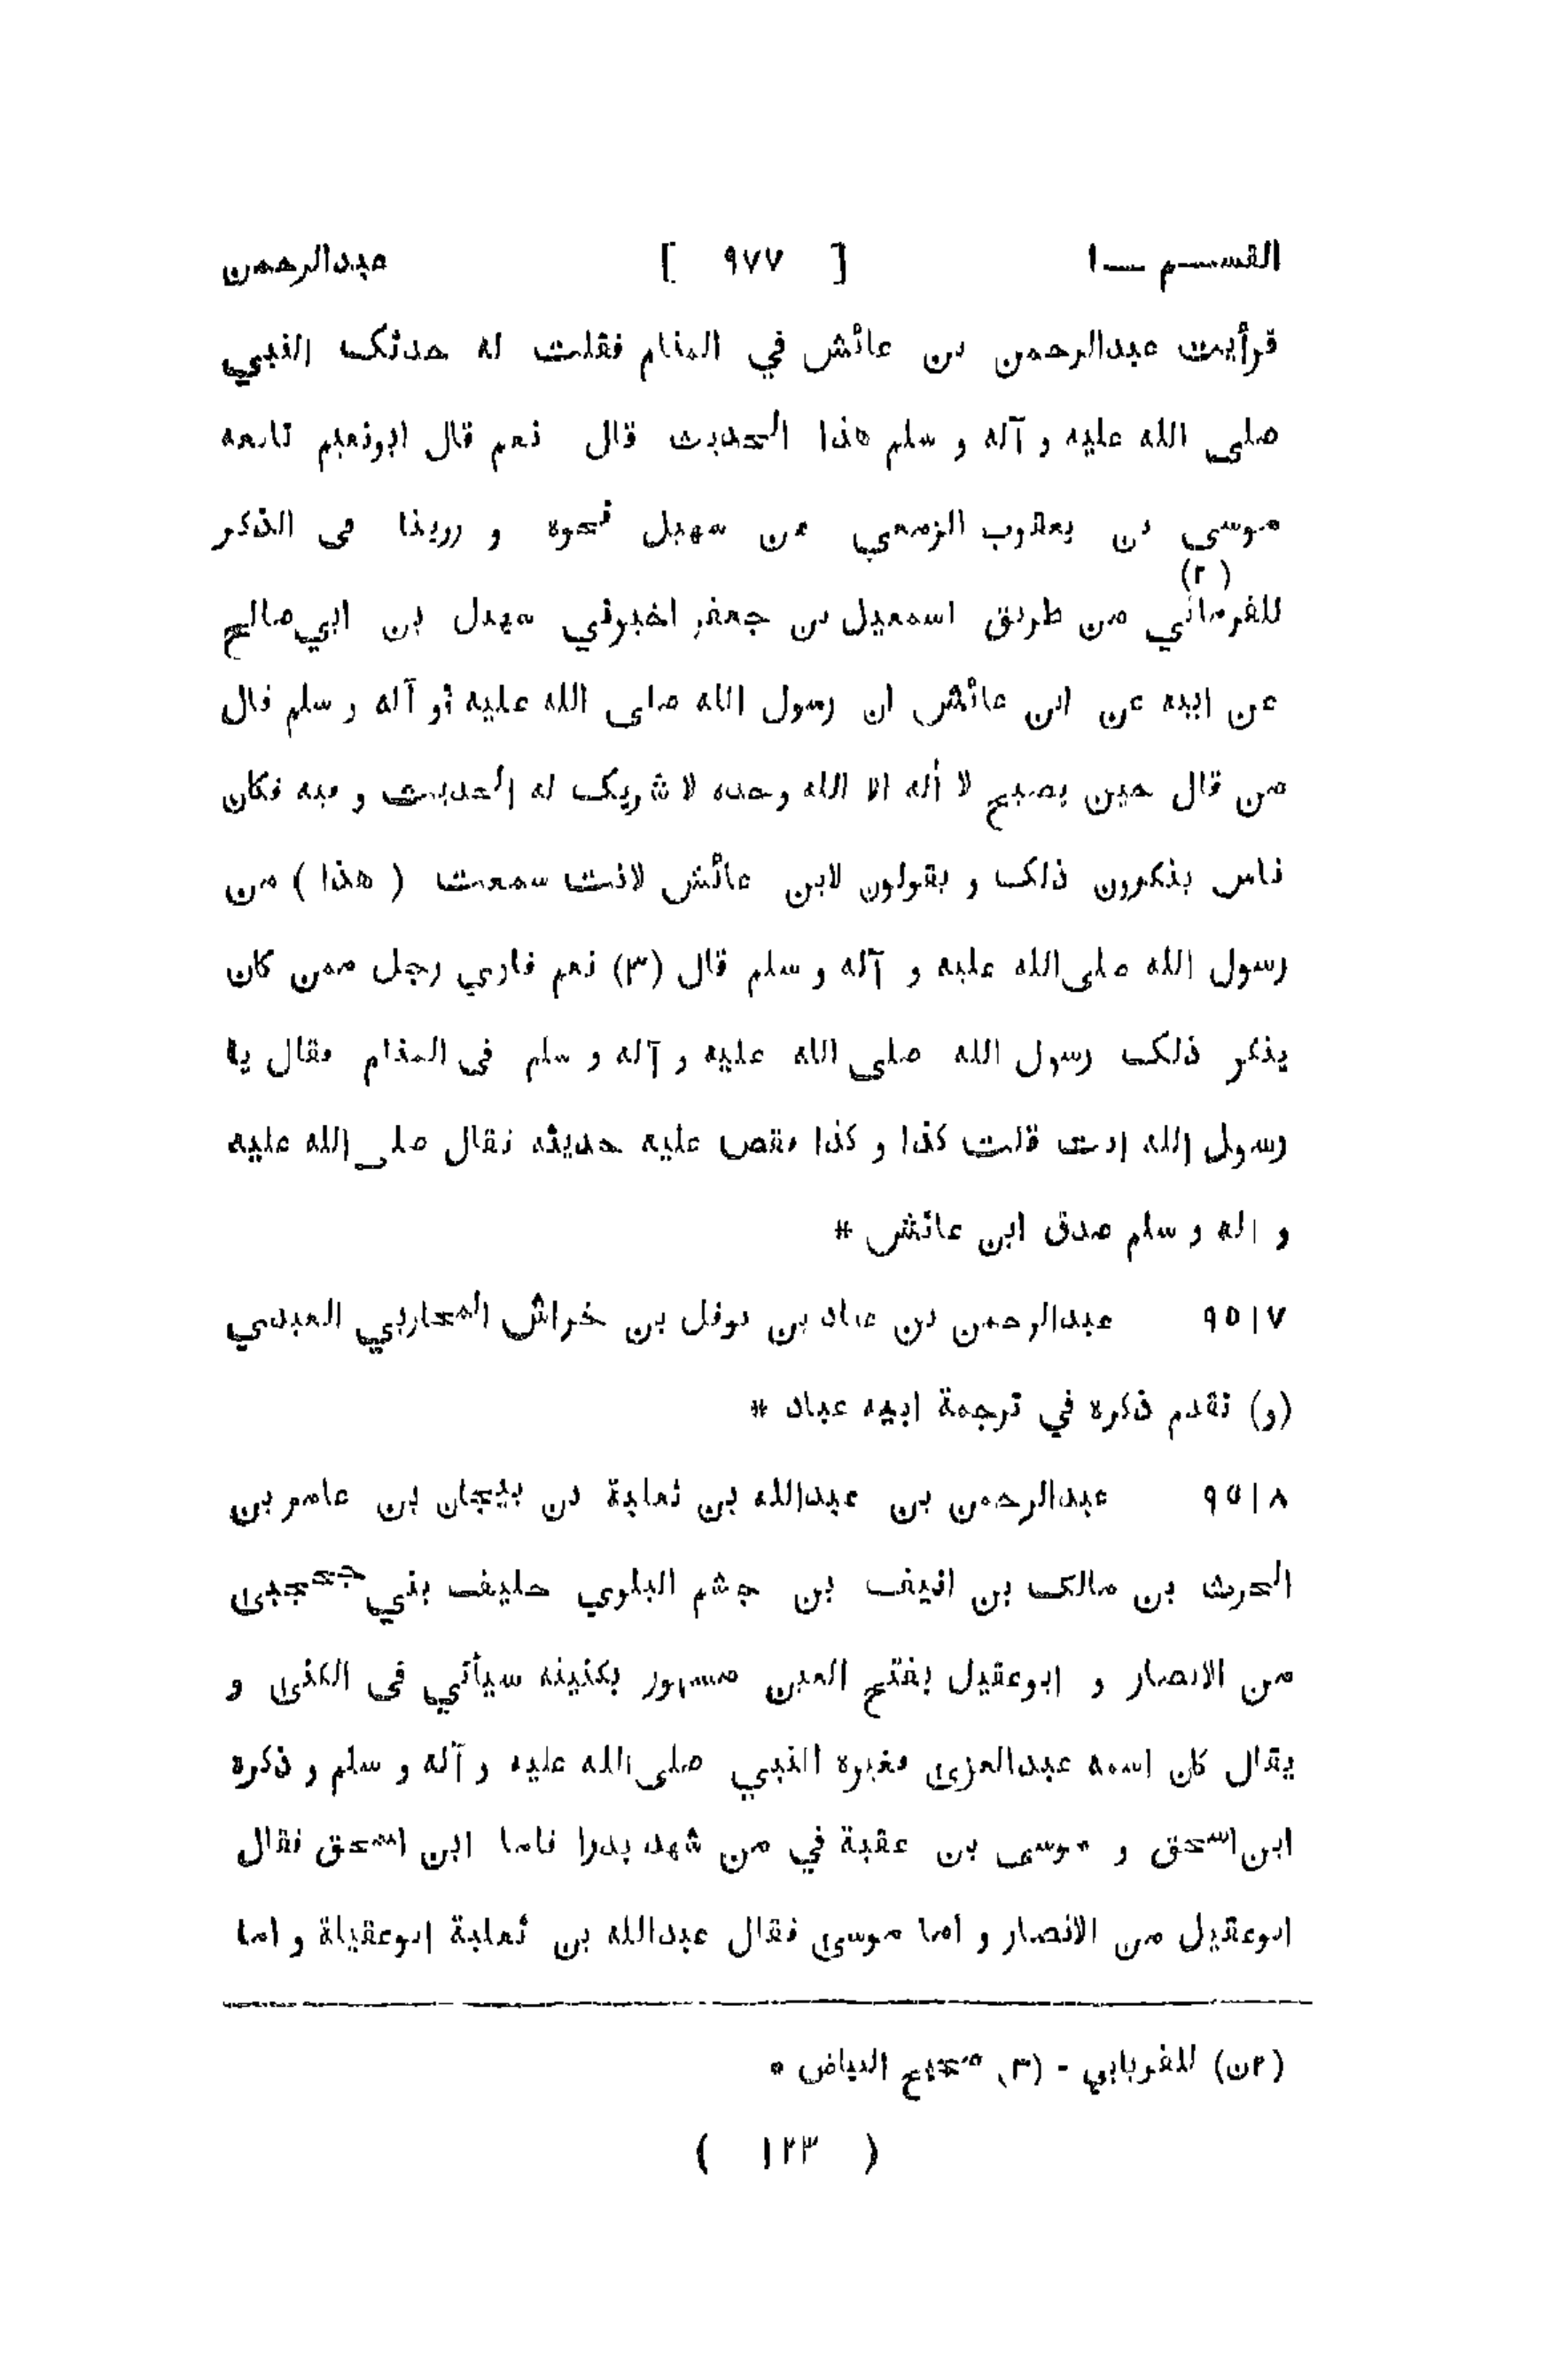 القسم — ١ [ ٩٧٧ ] عبدالرحمن
فرأيت عبدالرحمن بن عائش في المنام فقلت له حدثك النبي
صلى الله عليه و آله و سلم هذا الحديث قال نعم قال ابونعيم تابعه
موسى بن يعقوب الزمعي عن سهيل نحوه و روينا في الذكر
(٢)
للفرماني من طريق اسمعيل بن جعفر اخبرني سهيل بن ابي صالح
عن ابيه عن ابن عائش ان رسول الله صلى الله عليه و آله و سلم قال
من قال حين يصبح لا أله الا الله وحده لا شريك له الحديث و فيه فكان
ناس يذكرون ذلك و يقولون لابن عائش لانت سمعت ( هذا ) من
رسول الله صلى الله عليه و آله و سلم قال (٣) نعم فاري رجل ممن كان
يذكر ذلك رسول الله صلى الله عليه و آله و سلم في المنام فقال يا
رسول الله انت قلت كذا و كذا فقص عليه حديثه فقال صلى الله عليه
و اله و سلم صدق ابن عائش *
٩٥١٧ عبدالرحمن بن عباد بن نوفل بن خراش المحاربي العبدي
(و) تقدم ذكره في ترجمة ابيه عباد *
٩٥١٨ عبدالرحمن بن عبدالله بن ثعلبة بن بيجان بن عامر بن
الحرث بن مالك بن انيف بن جشم البلوي حليف بني جحجبى
من الانصار و ابوعقيل بفتح العين مشهور بكنيته سيأتي في الكنى و
يقال كان اسمه عبدالعزى فغيره النبي صلى الله عليه و آله و سلم و ذكره
ابن اسحق و موسى بن عقبة في من شهد بدرا فاما ابن اسحق فقال
ابوعقيل من الانصار و اما موسى فقال عبدالله بن ثعلبة ابوعقيلة و اما
(٢ن) للفريابي - (٣) صحيح البياض *
( ١٢٣ )